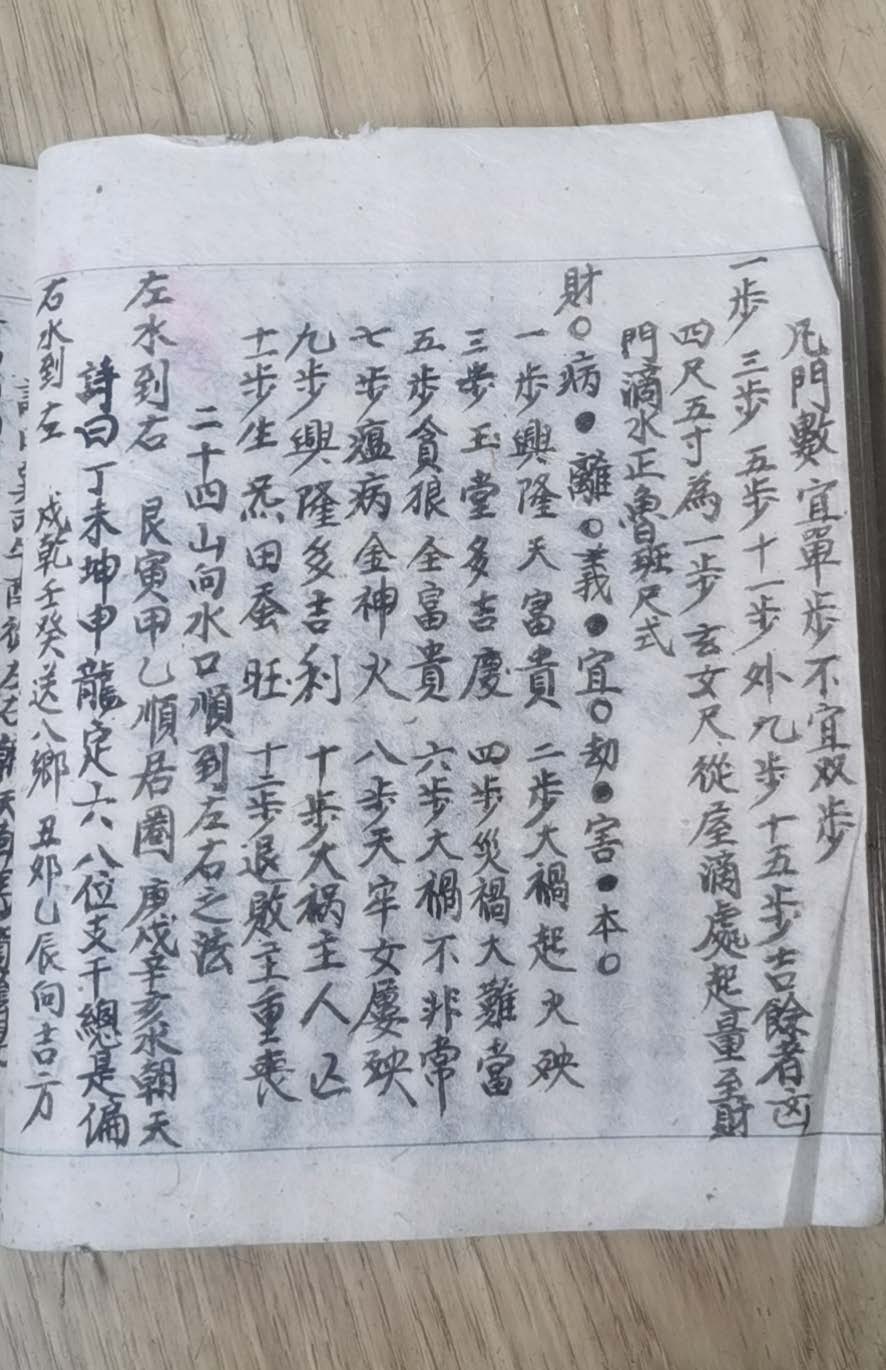 凡門數宜單步不宜双步
一步 三步 五步 十一步 外九步 十五步吉餘者凶
四尺五寸為一步玄女尺從屋滴處起量至財
門滴水正魯班尺式
財○病●離○義●宜○劫●害●本○
一步興隆天富貴 二步大禍起火殃
三步玉堂多吉慶 四步災禍大難當
五步貪狼全富貴 六步大禍不非常
七步瘟病金神火 八步天牢女屢殃
九步興隆多吉利 十步大祸主人亡
十一步生炁田蚕旺 十二步退敗主重喪
二十四山向水口順到左右之法
左水到右 艮寅甲乙順居圈 庚戌辛亥水朝天
詩曰丁未坤申龍定六 八位支干總是偏
右水到左 戌乾壬癸送八鄉 丑卯乙辰向吉方